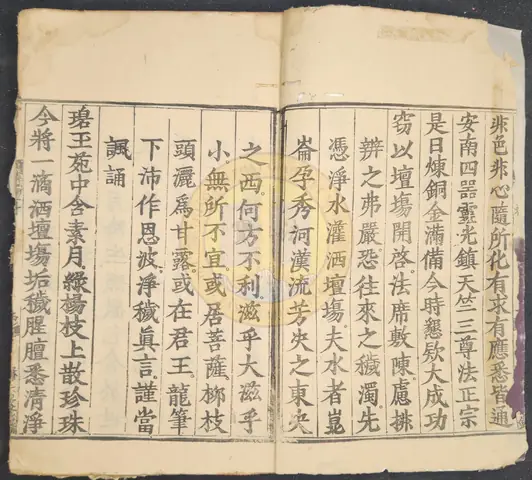 非色非心隨所化有求有應悉皆通
安南四器靈光鎮天竺三尊法正宗
是日煉銅金滿備今時懇欵大成功
窃以壇塲開啓法席敷陳慮排
辨之弗嚴恐徃來之穢濁先
憑淨水灌洒壇塲夫水者崑
崙孕秀河漢流芳失之東央
之西何方不利滋乎大滋乎
小無所不宜或居菩薩柳枝
頭灑爲甘露或在君王龍筆
下沛作恩波淨穢眞言謹當
諷誦
珺王苑中含素月綠楊枝上散珍珠
今將一滴洒壇塲垢穢腥膻悉清淨